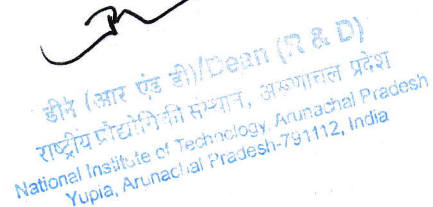 डीन (आर एंड डी)/Dean (R & D)
राष्ट्रीय प्रौद्योगिकी संस्थान, अरूणाचल प्रदेश
National Institute of Technology, Arunachal Pradesh
Yupia, Arunachal Pradesh-791112, India